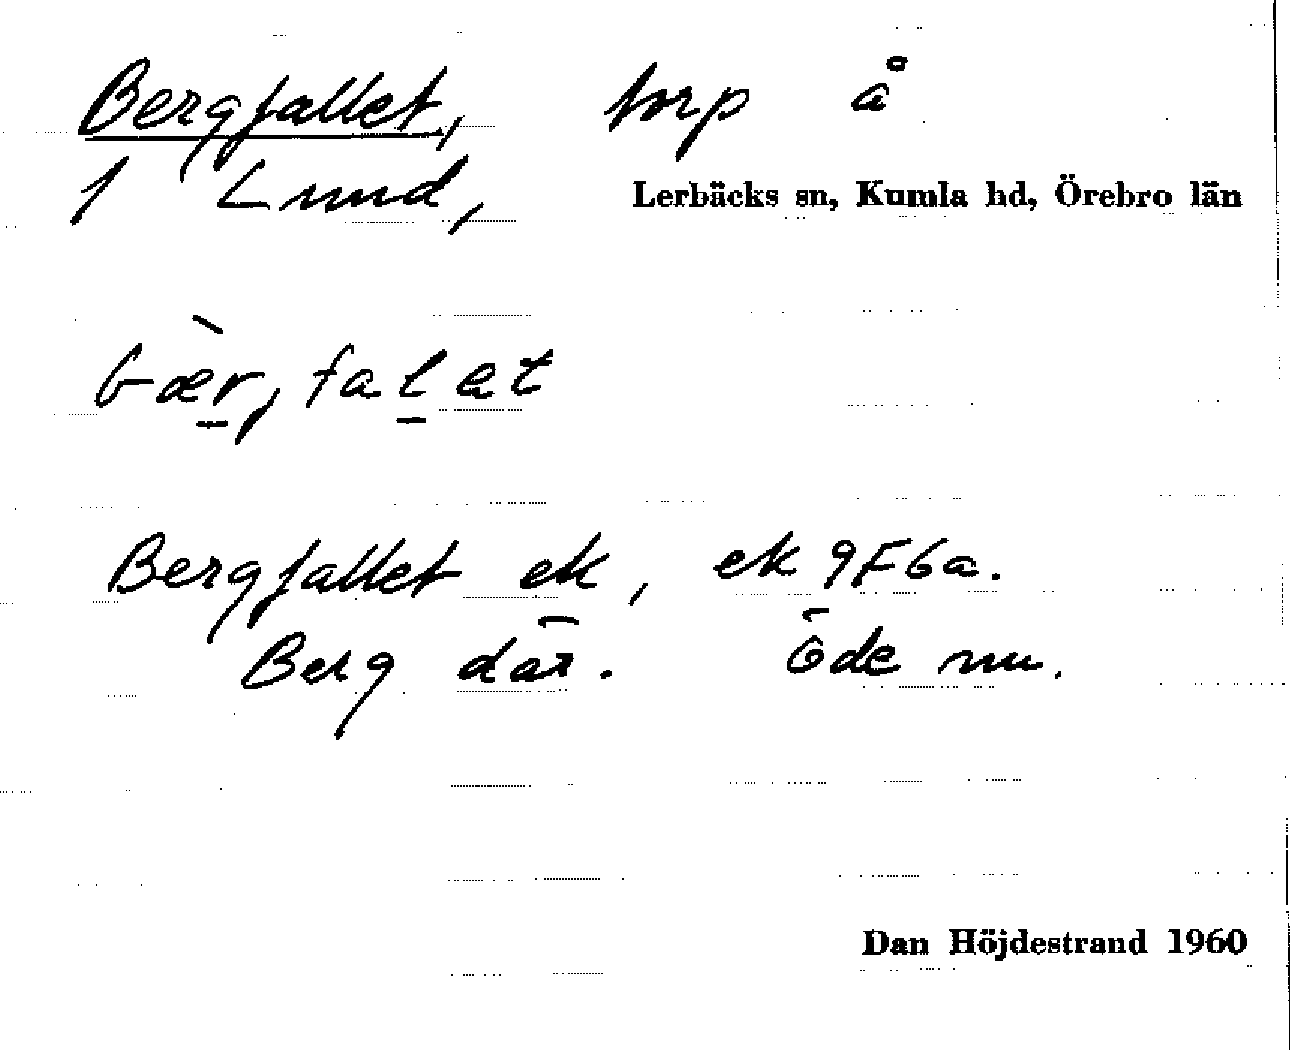 Bergfallet, torp å
1 Lund, Lerbäcks sn, Kumla hd, Örebro län
bær,falet
Bergfallet ek, ek 9F6a.
Berg där. Öde nu.
Dan Höjdestrand 1960